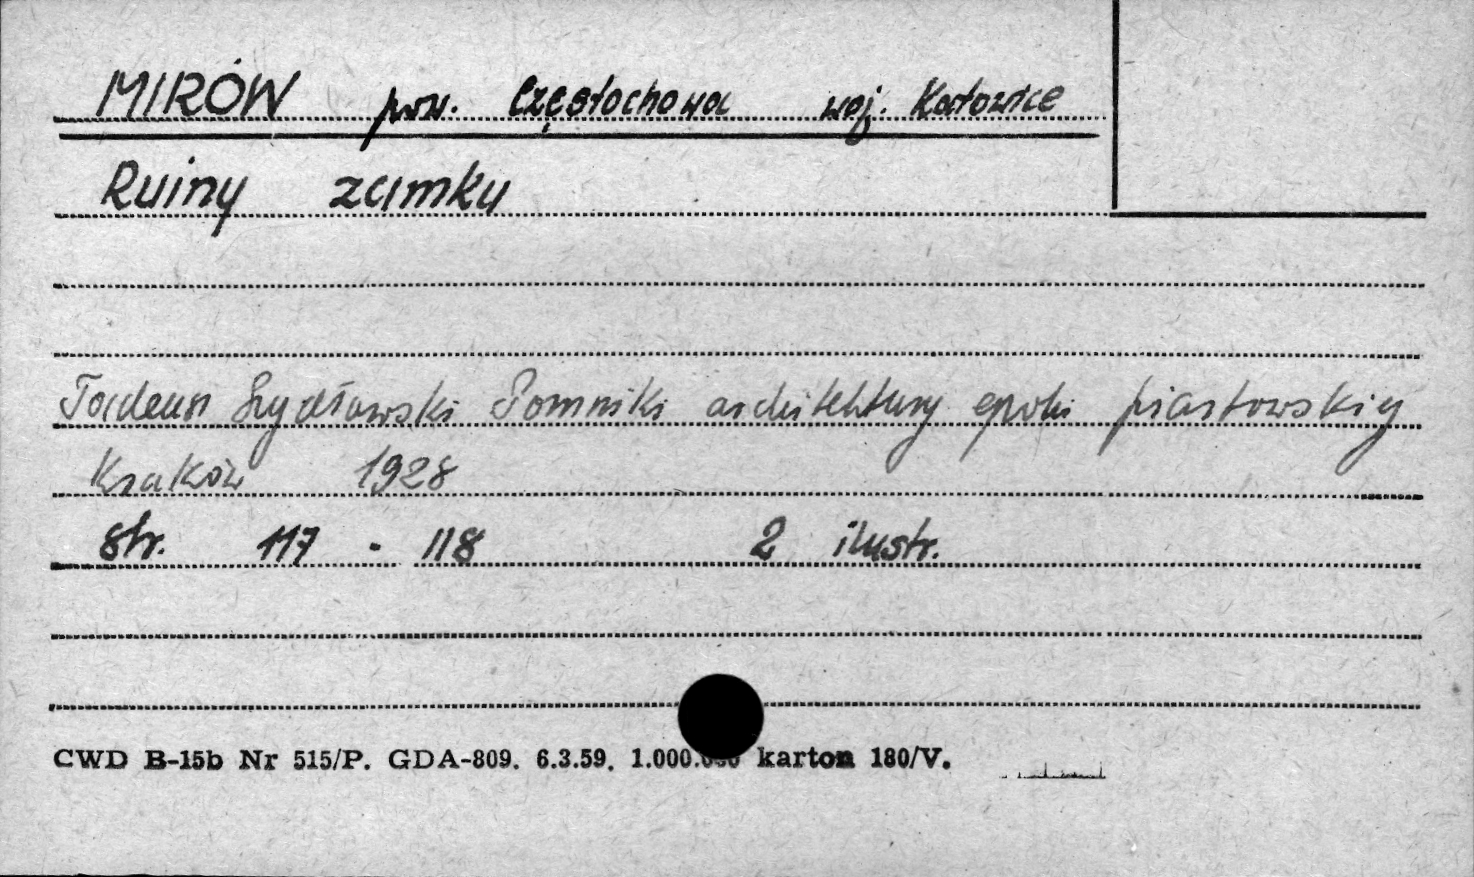 MIRÓW pow. Częstochowa woj. Katowice
Ruiny zamku
Tadeusz Szydłowski Pomniki architektury epoki piastowskiej
Kraków 1928
str. 117 - 118 2 ilustr.
CWD B-15b Nr 515/P. GDA-809. 6.3.59. 1.000.000 karton 180/V.